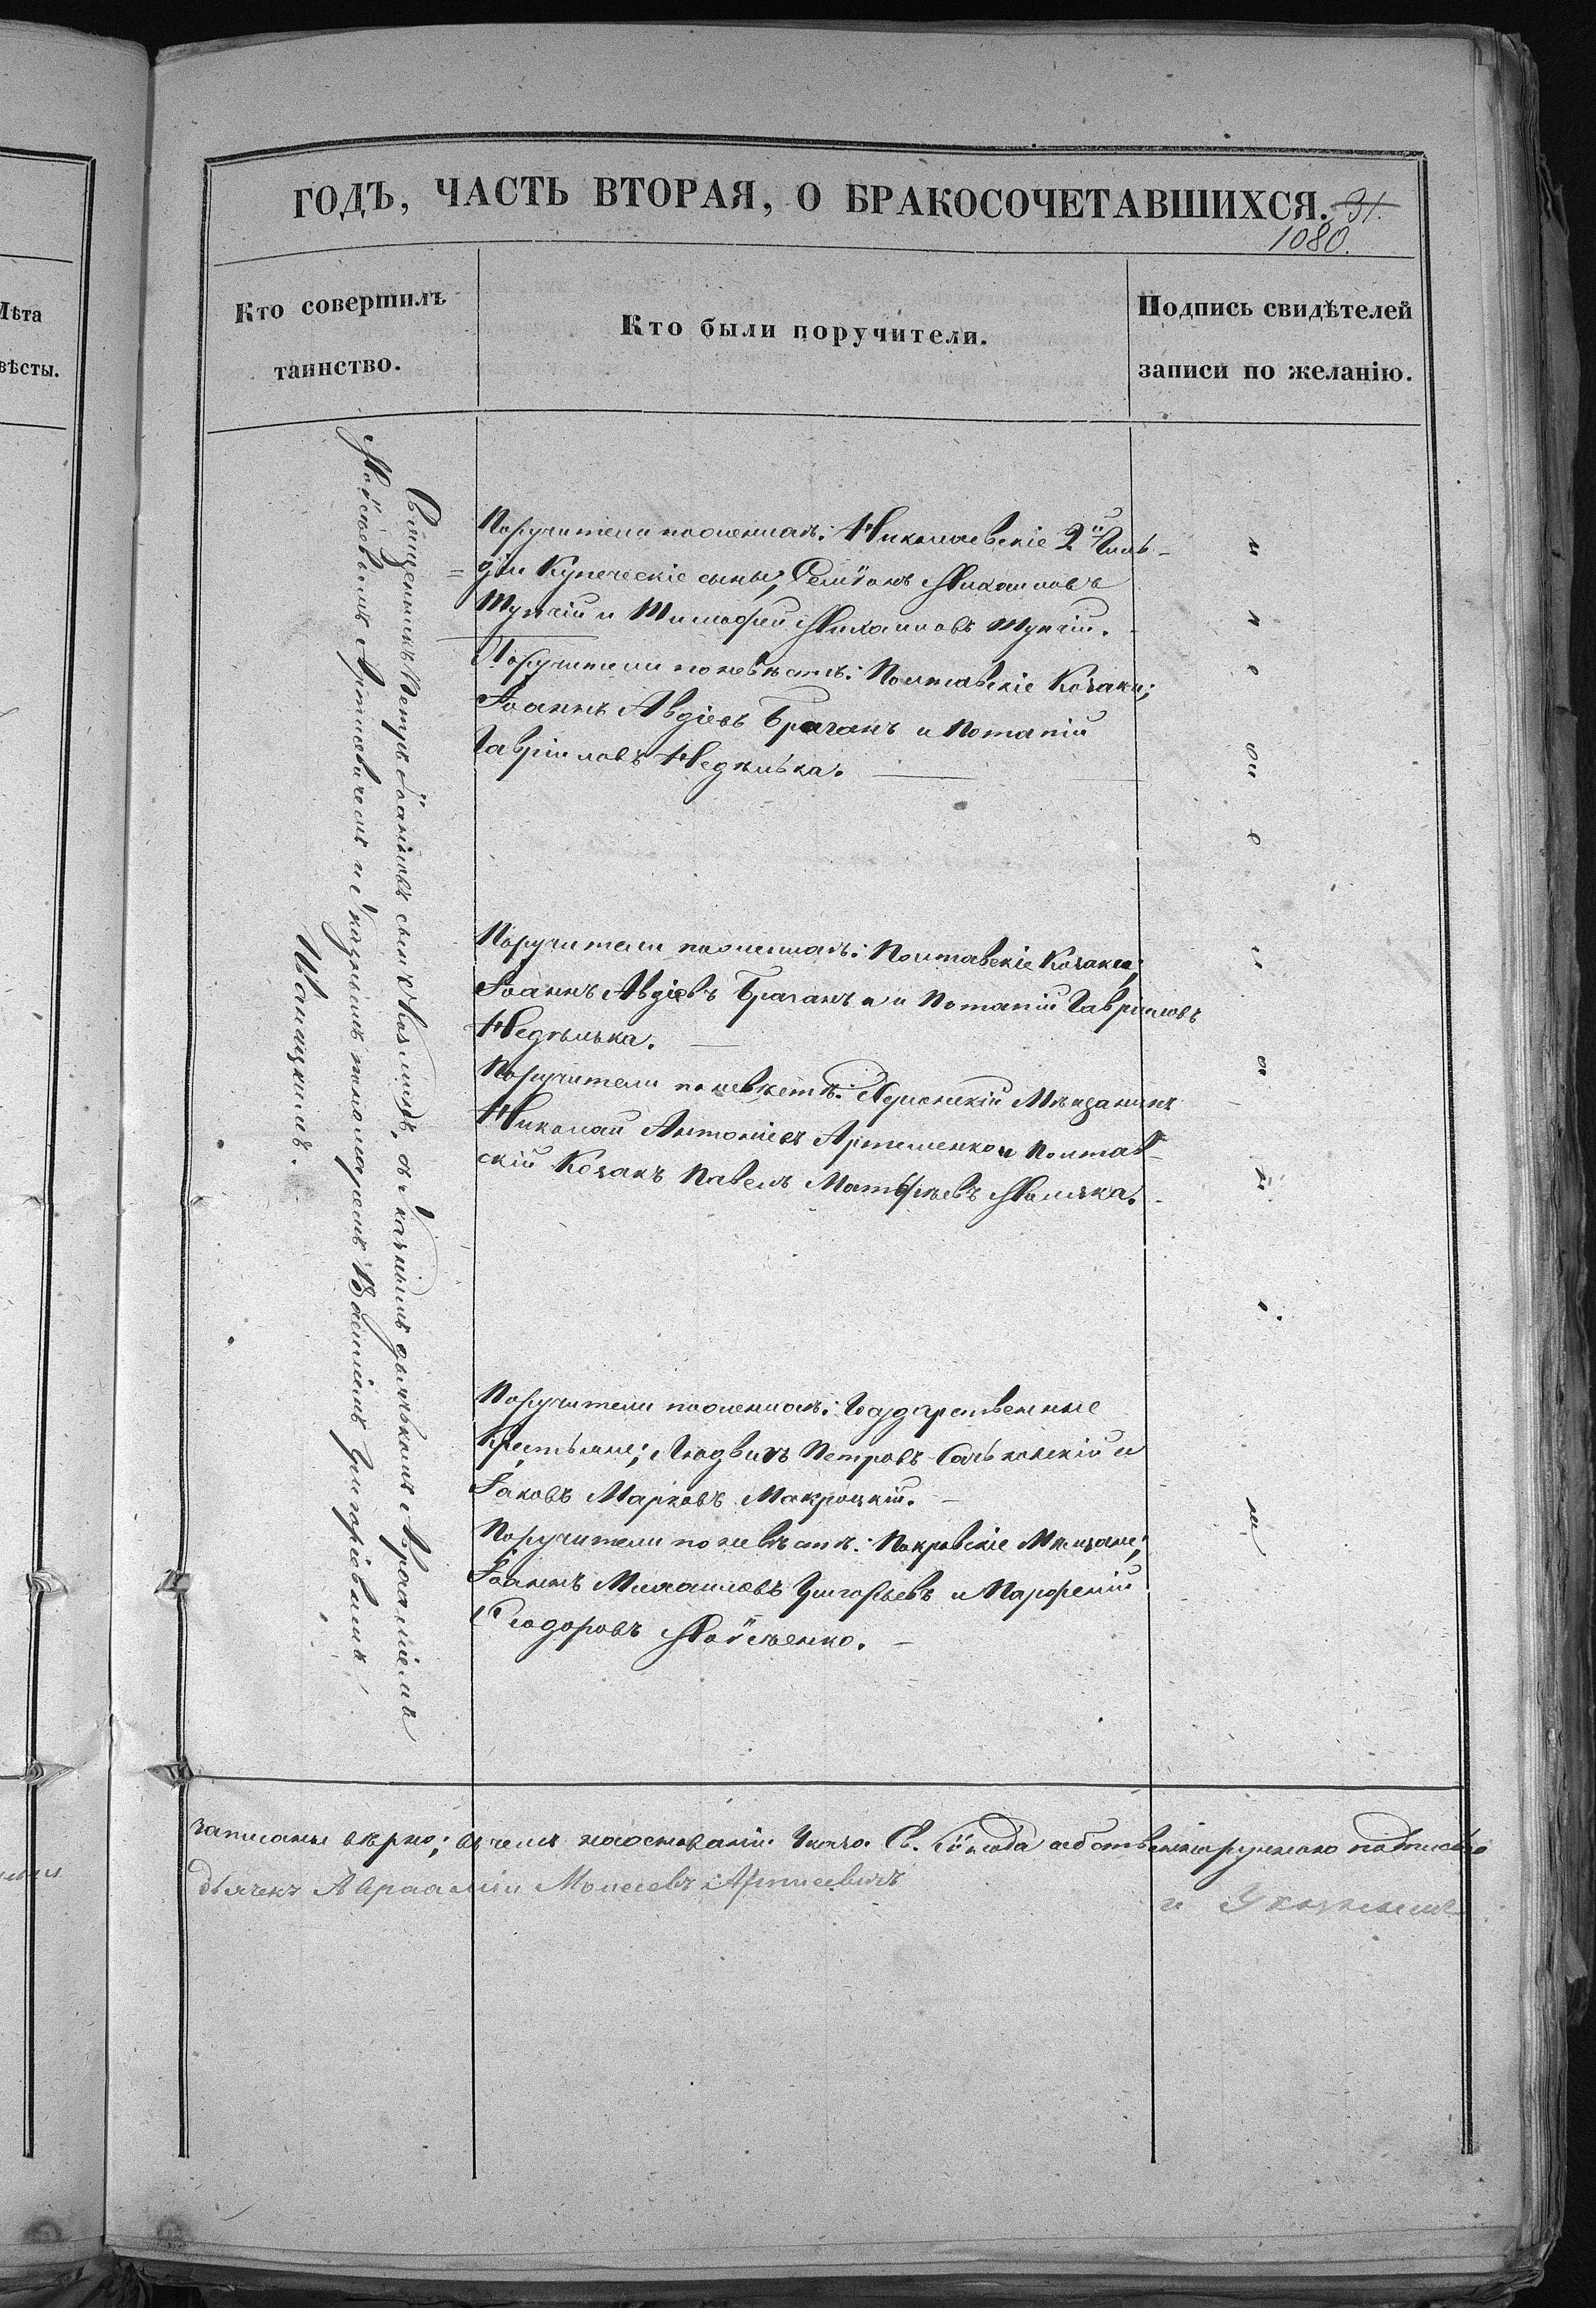 ГОДЪ, ЧАСТЬ ВТОРАЯ, О БРАКОСОЧЕТАВШИХСЯ. 31.
1080.
Лѣта
вѣсты.
Кто совершилъ
таинство.
Кто были поручители.
Подпись свидѣтелей
записи по желанію.
Священникъ Петръ Іоанновъ сынъ Козминъ, съ указнымъ дьячкомъ Авраамiемъ
Моѵсеевымъ Артисевичемъ и указнымъ пономаремъ Григоріевымъ
Поручители по женихѣ: Николаевскіе 2й Гиль-
=діи Купеческіе сыны; Семіонъ Михаиловъ
Тупчій и Тимофей Михаиловъ Тупчій.
Поручители по невѣстѣ: Полтавскіе Козаки;
Іоаннъ Авдіевъ Браганъ и Потапій
Гавріиловъ Недѣлька.
Поручители по женихѣ: Полтавскіе Козаки;
Іоаннъ Авдіевъ Браганъ и Потапій Гавріиловъ
Недѣлька.
Поручители по невѣстѣ: Херсонскій Мѣщанинъ
Николай Антоніевъ Артеменко и Полтав-
скій Козакъ Павелъ Матфѣевъ
Поручители по женихѣ: Государственные
Крестьяне; Людвигъ Петровъ Сальконскій и
Іаковъ Марковъ Макроцкій.
Поручители по невѣстѣ: Покровскіе Мѣщане;
Іоаннъ Михаиловъ Григорьевъ и Парфеній
Ѳеодоровъ Моѵсѣенко.
записаны вѣрно; въ чемъ на основаніи Указа Св. Сѵнода собственноручною подписью
дьячекъ Авраамій Моисеевъ Артисевичъ
и